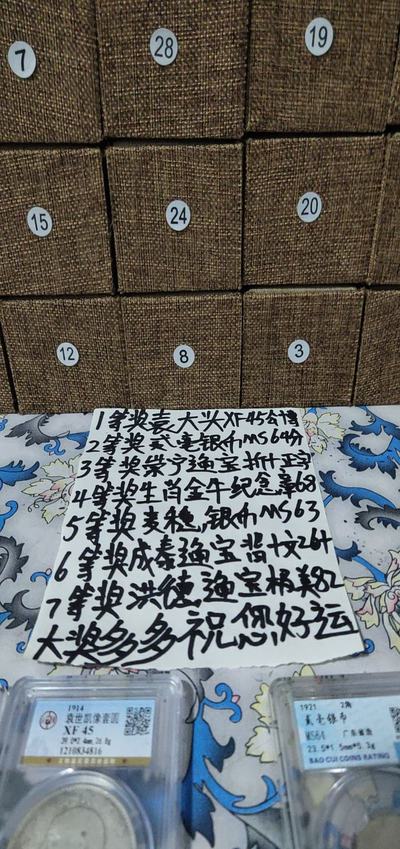 7
28
19
15
24
20
12
8
3
1等奖袁大头XF45公博
2等奖贰毫银币MS64分
3等奖崇宁通宝折十正字
4等奖生肖金牛纪念章68
5等奖麦穗银币MS63
6等奖咸泰通宝背十文26+
7等奖洪德通宝极美82
大奖多多祝您好运
1914
袁世凯像壹圆
XF 45
1210834816
1921 2角
贰毫银币
MS64 广东省造
23.5*1.5mm*5.3g
BAO CUI COINS RATING